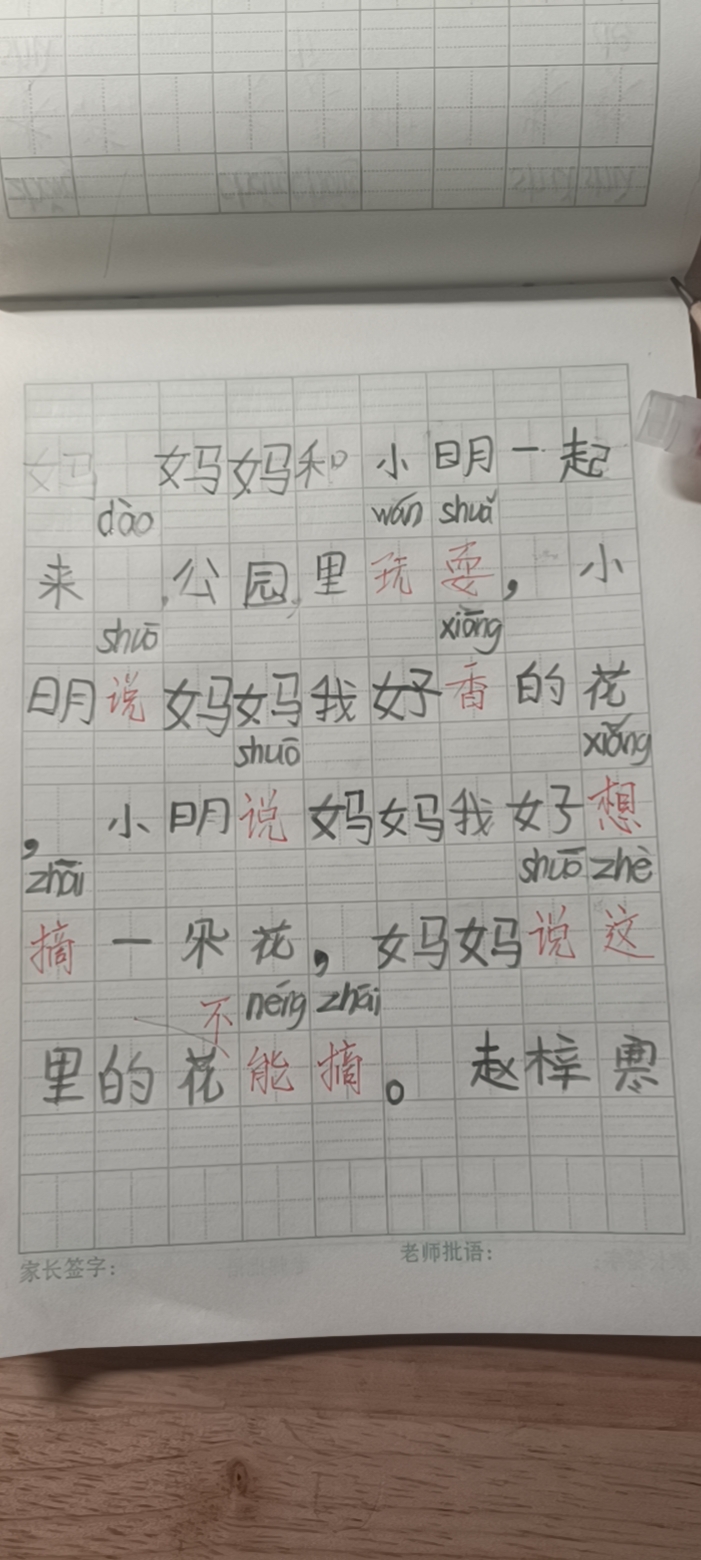 妈妈和小明一起
dào wán shuǎ
来 公园里玩耍，小
shuō xiāng
明说妈妈我好香的花
shuō xiǎng
，小明说妈妈我好想
zhāi shuō zhè
摘一朵花，妈妈说这
不 néng zhāi
里的花能摘。赵梓
家长签字： 老师批语：